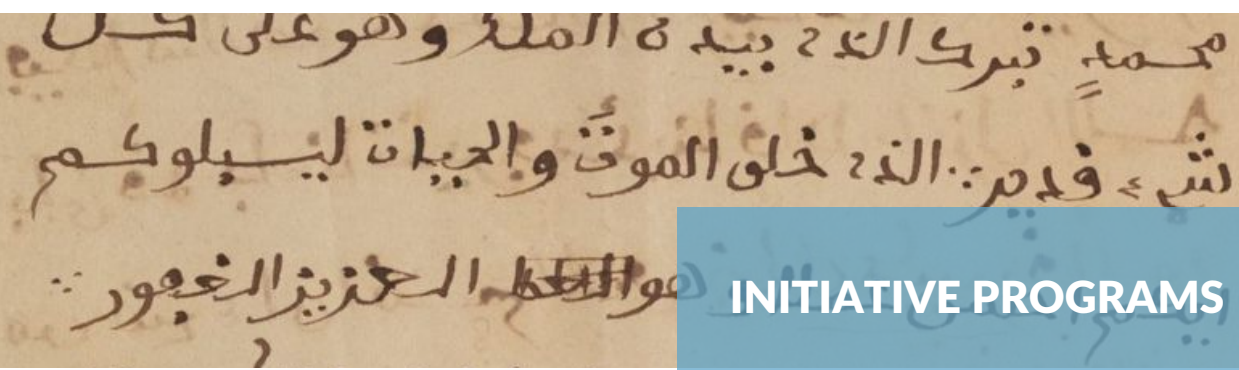 محمدٍ تبرك الذي بيده الملك وهو على كل
شيء قدير ∴ الذي خلق الموت والحيات ليبلوكم
هو العزيز الغفور ∴
INITIATIVE PROGRAMS